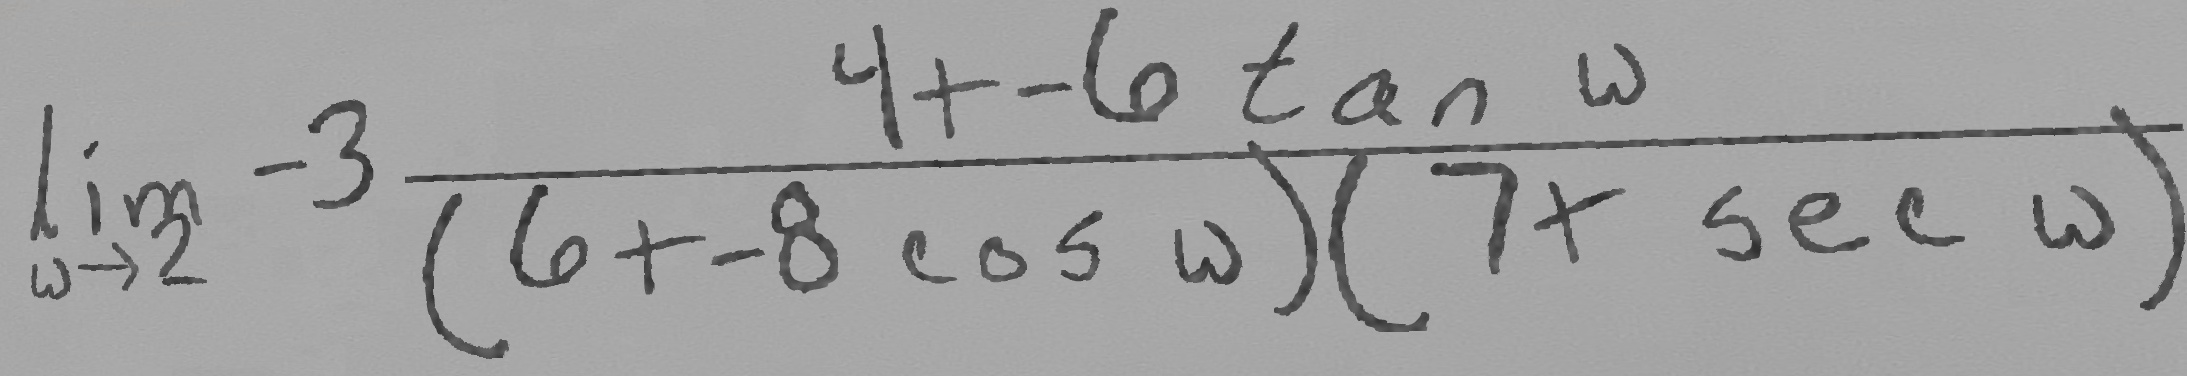 \lim_{w \to 2} -3 \frac{4+-6 \tan w}{(6+-8 \cos w)(7+ \sec w)}